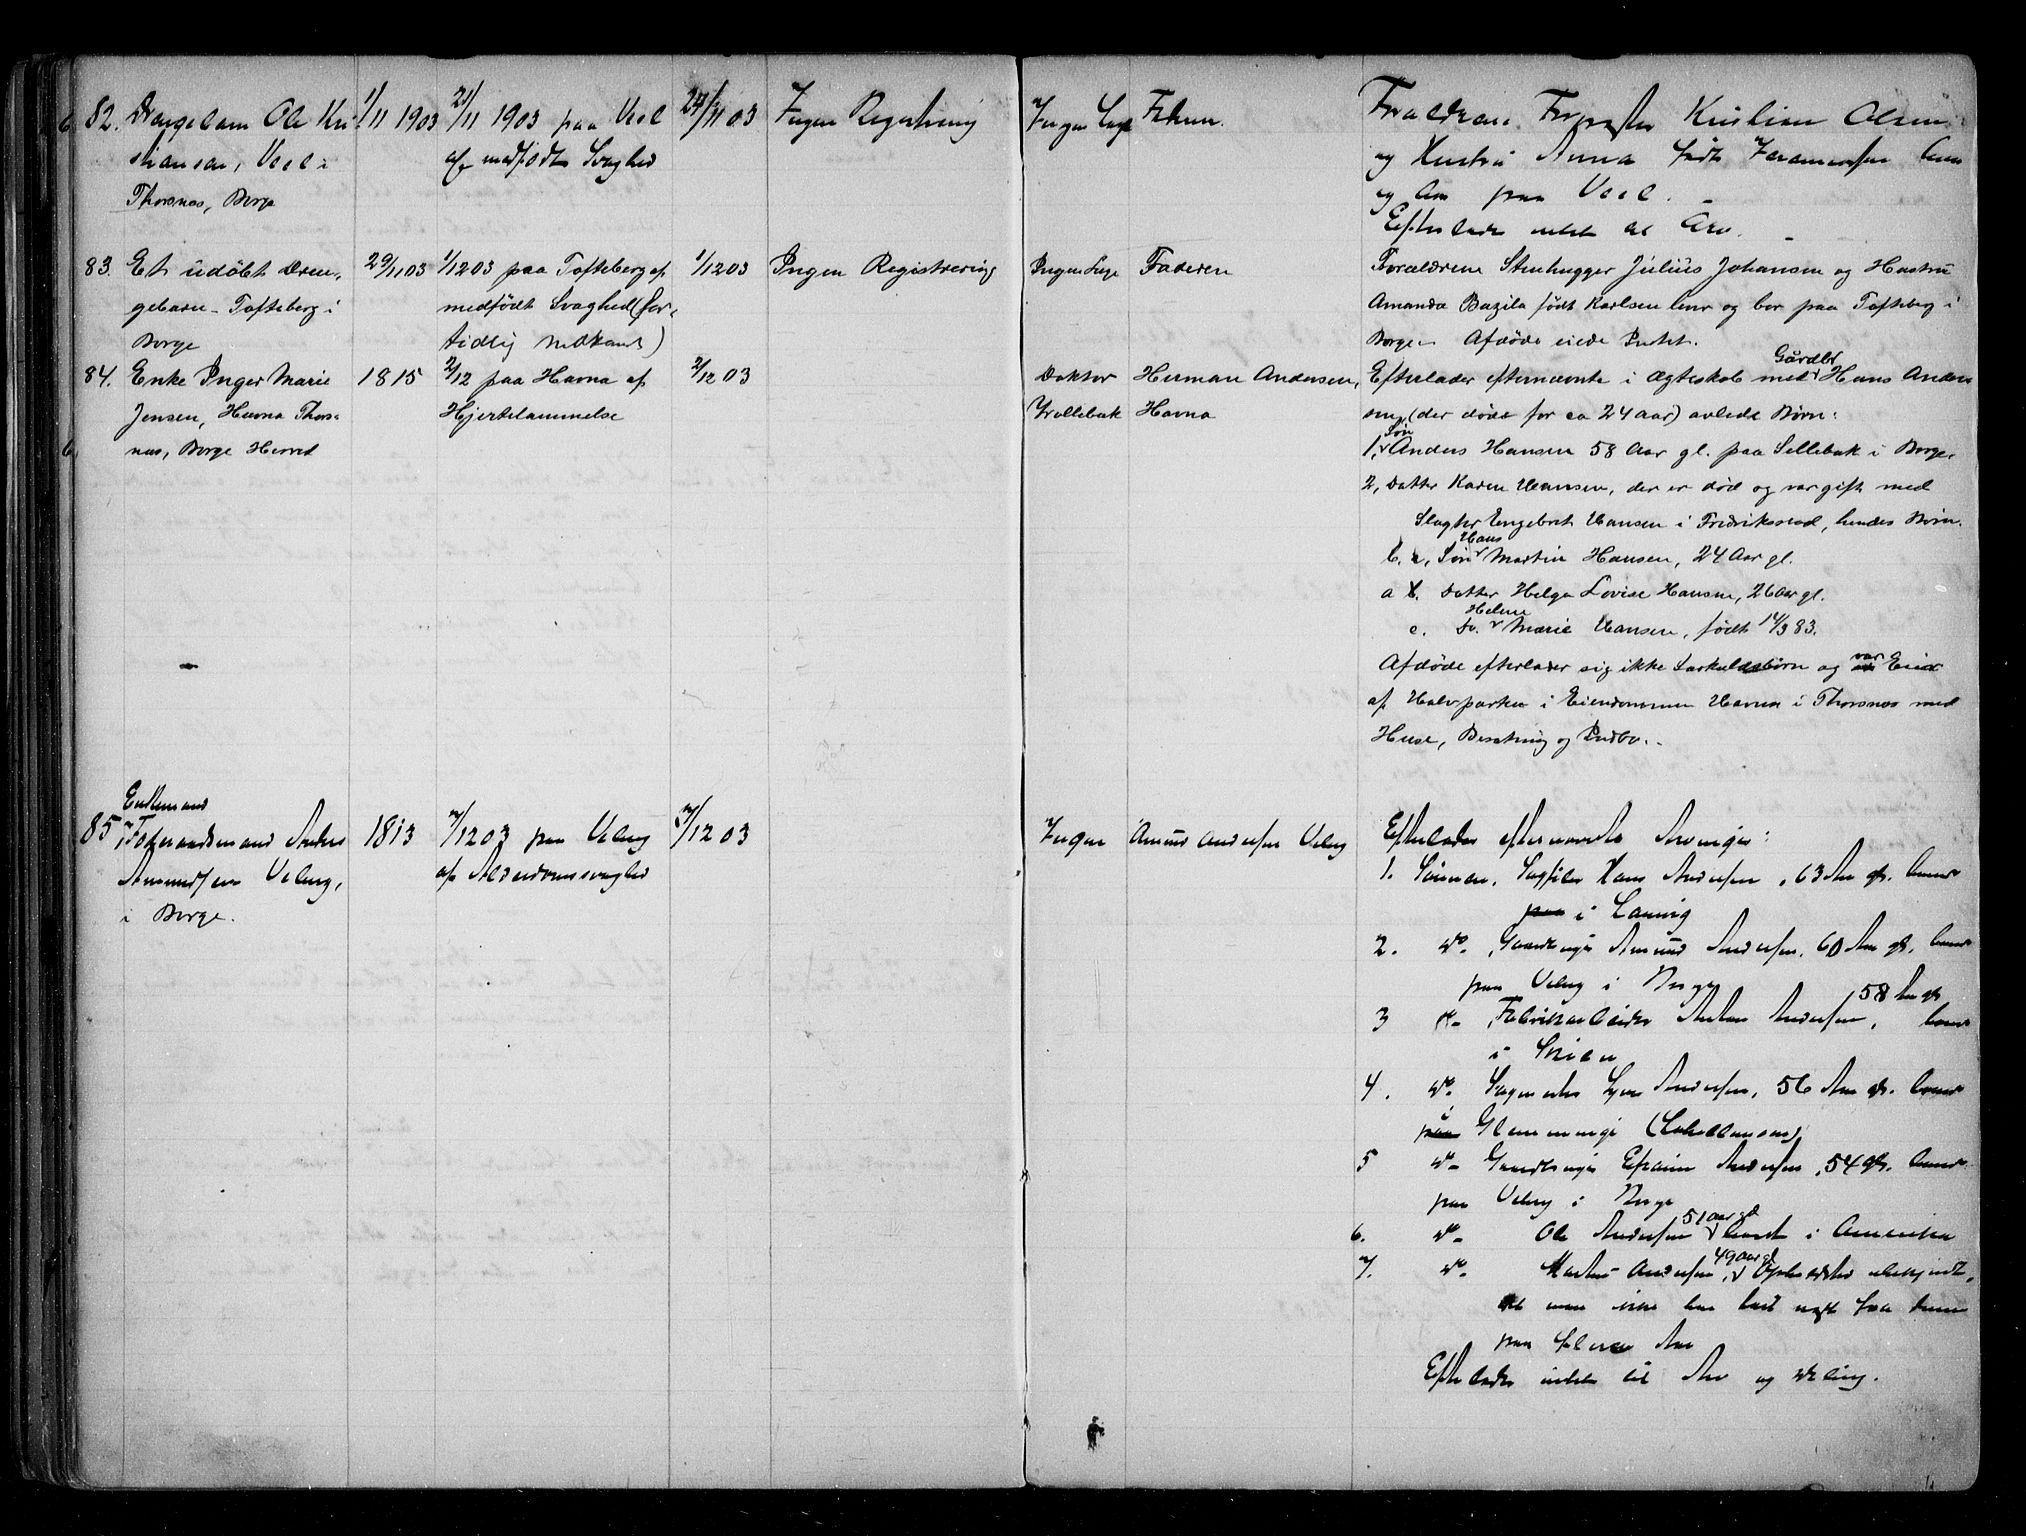 82. Drengebarn Ole Kri-
stiansen, Veel i
Thorsnæs, Borge
1/11 1903
21/11 1903 paa Veel
af medfødt Svaghed
11 03
Ingen Registrering
Ingen Læge
Faderen
Forældrene Kristian Olsen
og Hustru Anna født lever
og bor paa Veel.
Efterlader intet til Arv.
83. Et udøbt Dren-
gebarn - Tofteberg i
Borge
29/11 03
1/12 03 paa Tofteberg af
medfødt Svaghed (for
tidlig Nedkomst)
1/12 03
Ingen Registrering
Ingen Læge
Faderen
Forældrene Stenhugger Julius Johansen og Hustru
Amanda Bazila født Karlsen lever og bor paa Tofteberg i
Borge - Afdøde eiede Intet.
84. Enke Inger Marie
Jensen, Havna Thors-
næs, Borge Herred
1815
2/12 paa Havna af
Hjertelammelse
2/12 03
Doktor
Trollebak
Herman Andersen,
Havna
Gårdbr
Efterlader efternævnte i Ægteskab med Hans Anders
sen, (der døde for ca 24 aar) avlede Børn:
Søn
1, Anders Hansen 58 Aar gl. paa Sellebak i Borge.
2, Datter Karen Hansen, der er død og var gift med
Slagter Engebret Hansen i Fredriksstad, hendes Børn.
Hans
b. Søn Martin Hansen, 24 Aar gl.
a Datter Helga Lovise Hansen, 26 aar gl.
Helene
c. Do. Marie Hansen, født 14/3 83.
Afdøde efterlader sig ikke Særkuldsbørn og var Eier
af Halvparten i Eiendommen Havna i Thorsnæs med
Huse, Besætning og Indbo.
Enkemand
85. Anders
Amundsen Veberg,
i Borge.
1813
7/12 03 paa Veberg
af Alderdomssvaghed
7/12 03
Ingen
Amund Andersen Veberg
Efterlader efternævnte Arvinger:
1. Sønnen, Hans Andersen, 63 Aar gl. boende
paa i Laurvig
2. Do. Gaardeier Amund Andersen, 60 Aar gl. boende
paa Veberg i Borge
58 Aar gl
3 Do. Fabrikarbeider Anton Andersen, boende
i Skien
4. Do. Andersen, 56 Aar gl. boende
i
paa Glemminge
5 Do. Gaardeier Efraim Andersen, 54 gl. boende
paa Veberg i Borge
51 aar gl
6. Do. Ole Andersen boende i Amerika
49 aar gl
7. Do. Andersen, Opholdssted ubekjendt,
da man ikke har hørt noget fra ham
paa flere Aar
Efterlader intet til Arv og Deling.